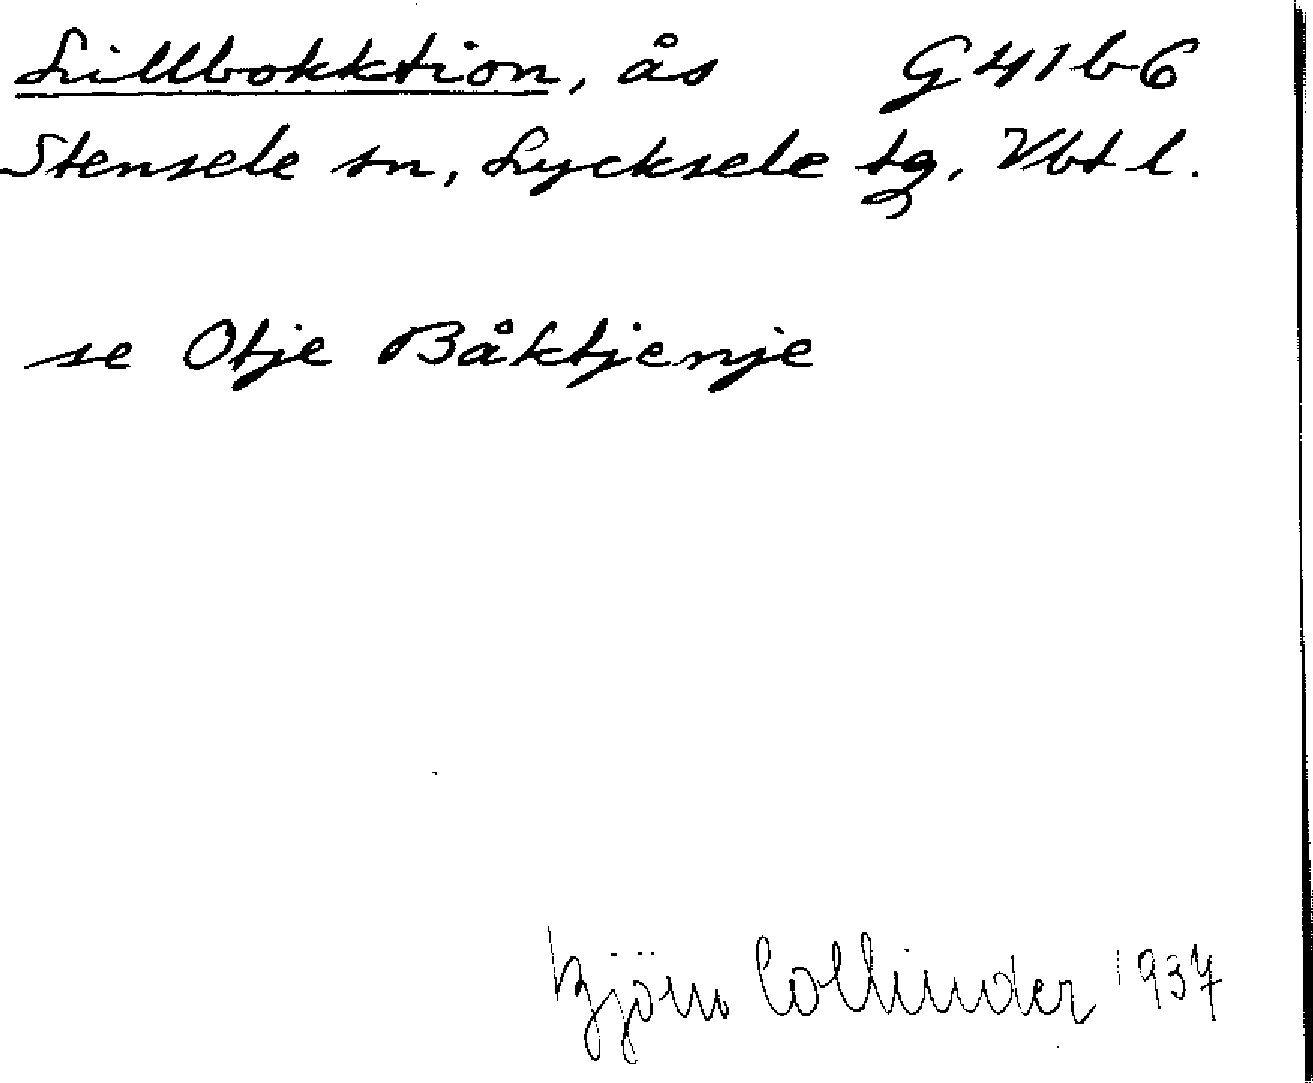 Lillbokktion, ås G41b6
Stensele sn, Lycksele tg, Vbt l.
se Otje Båktjenje
Björn Collinder 1937